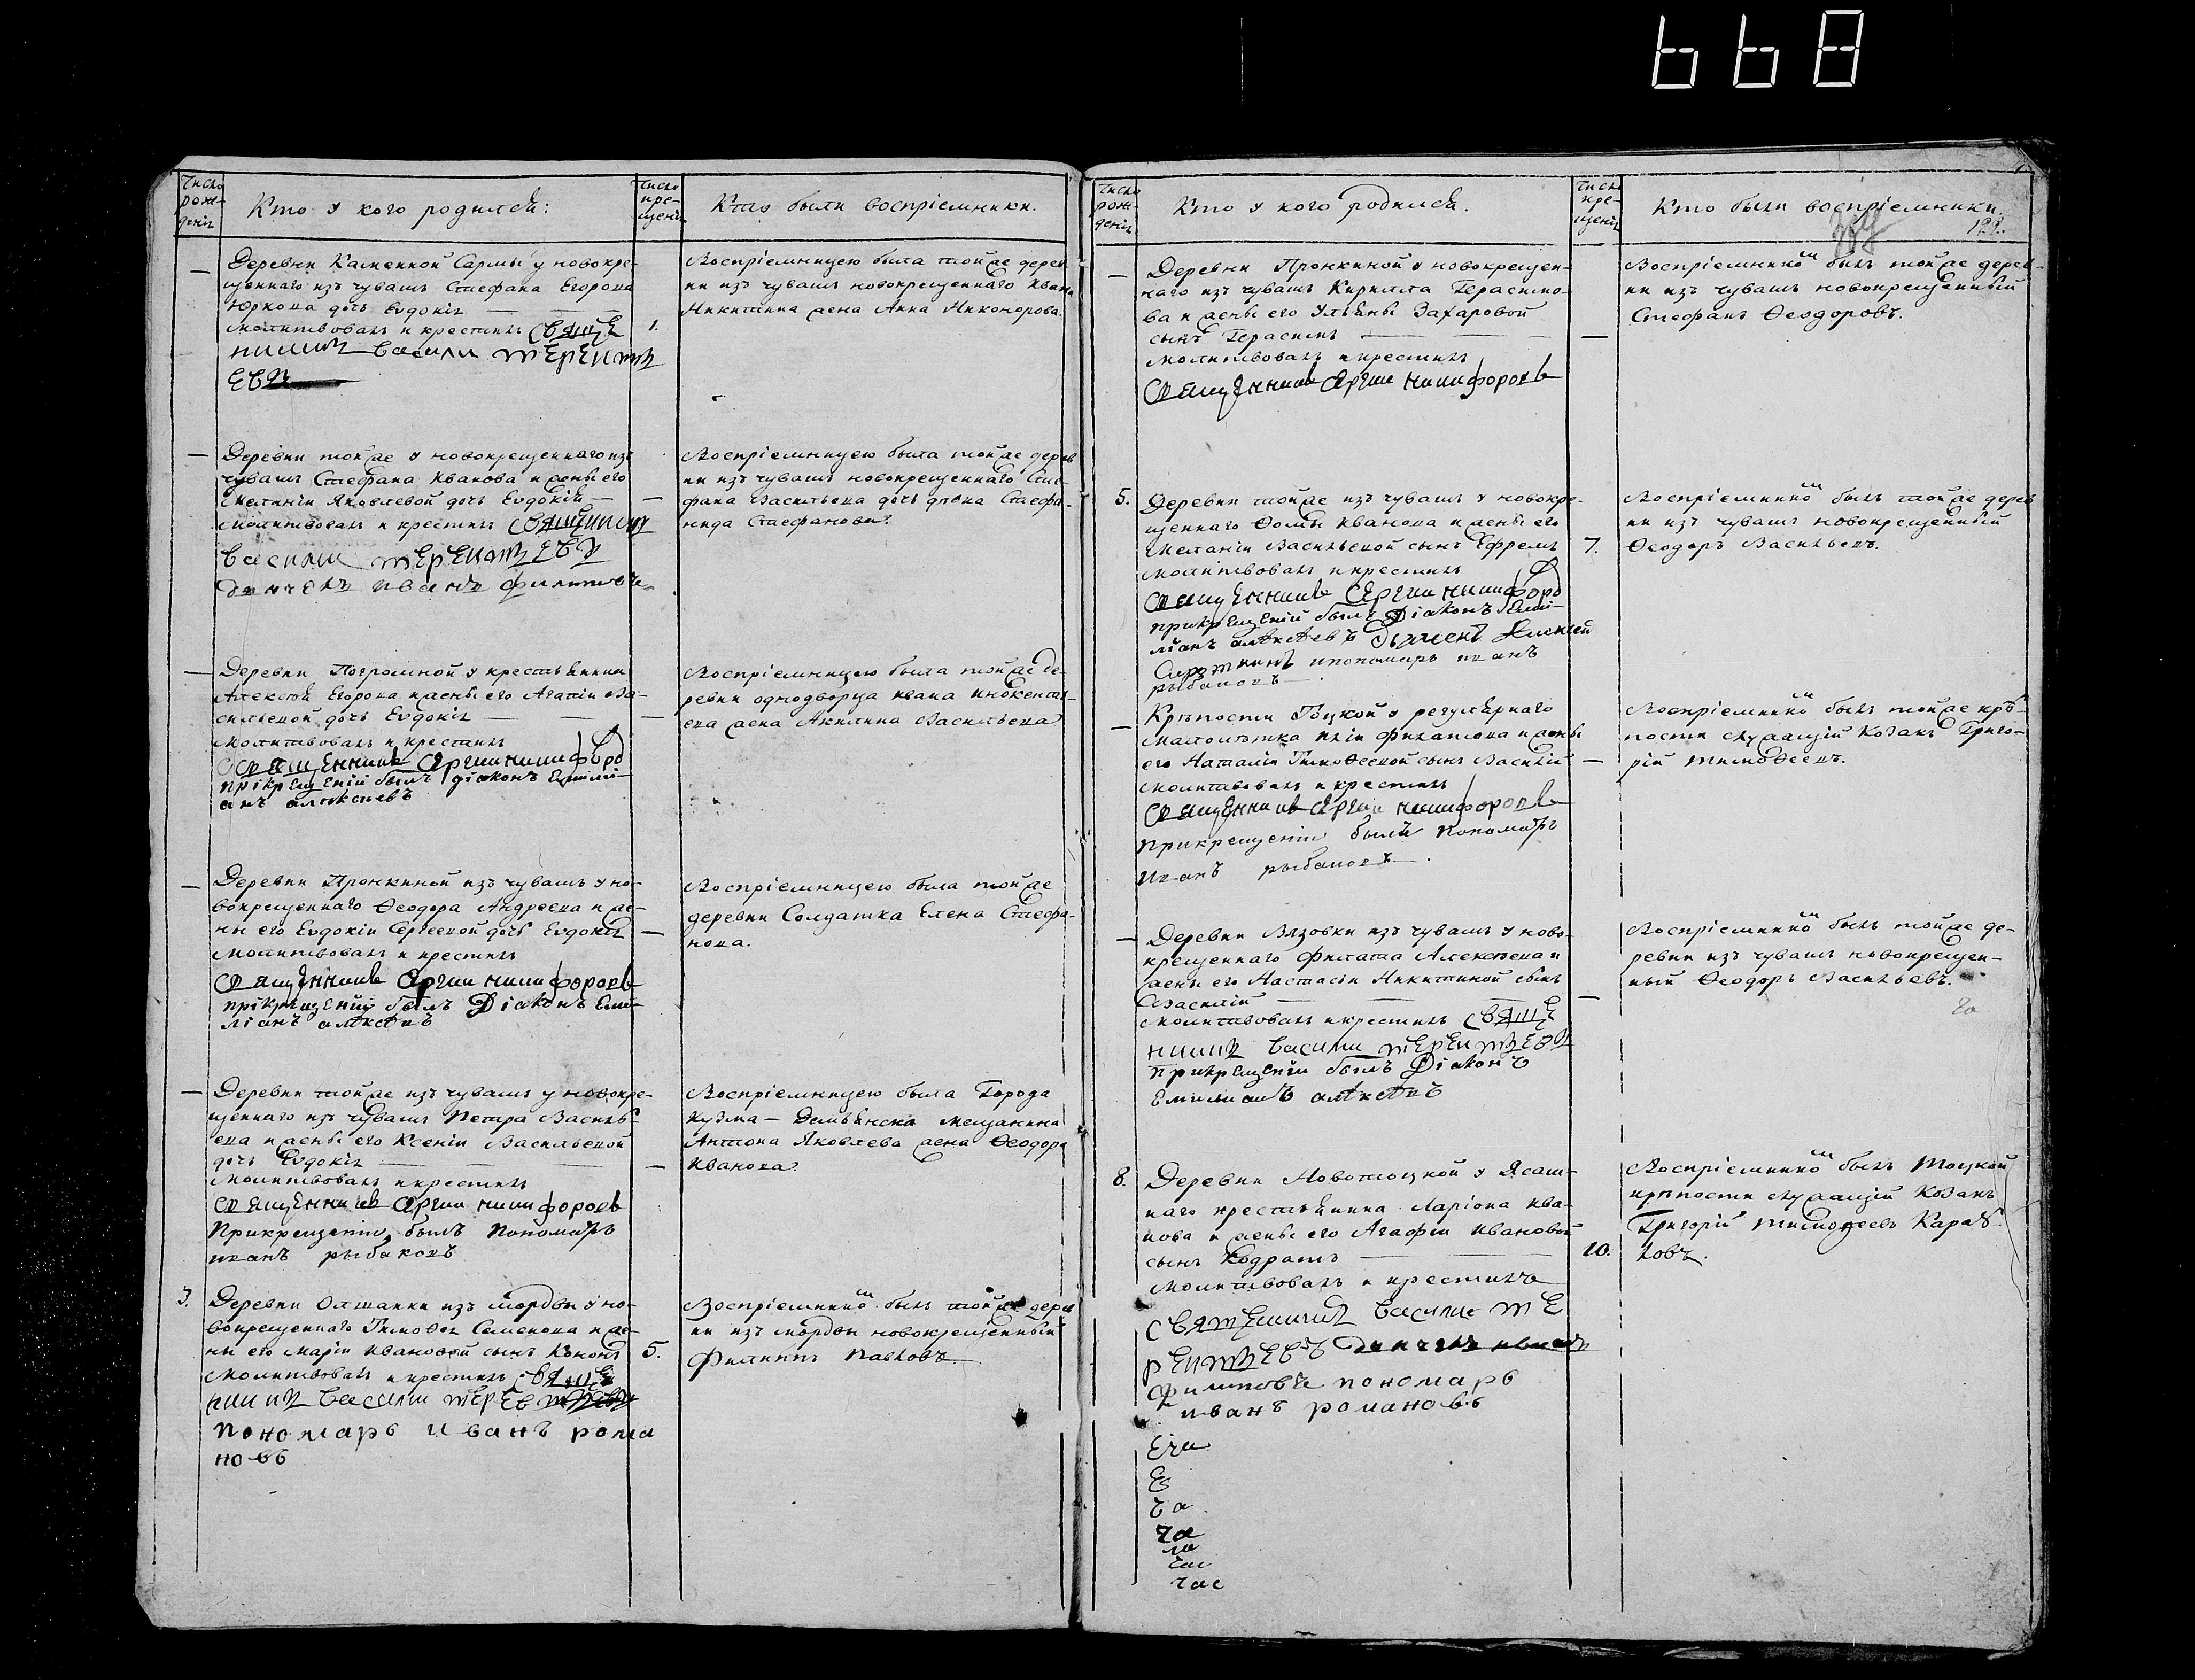 668
Число рож-
денія
Кто у кого родился:
Число
кре-
щенія
Кто были воспріемники.
—
Деревни Каменной Сармы у новокре-
щеннаго изъ чувашъ Стефана Егорова
Юркова дочь Евдокія — —
молитвовалъ и крестилъ Свяще
нникъ василеи терентъ
евъ
1.
Воспріемницею была тойже дерев
ни изъ чувашъ новокрещеннаго Ивана
Никитина жена Анна Никонорова.
—
Деревни тойже у новокрещеннаго изъ
чувашъ Стефана Иванова и жены его
Меланіи Яковлевой дочь Евдокія —
молитвовалъ и крестилъ Священникъ
василеи терентъевъ
диячекъ иванъ филиповъ
—
Воспріемницею была тойже дерев
ни изъ чувашъ новокрещеннаго Сте-
фана Васильева дочь девка Стефа-
нида Стефанова.
—
Деревни Погромной у крестьянина
Алексея Егорова и жены его Агапіи Ва-
сильевой дочь Евдокія — —
молитвовалъ и крестилъ
священникъ сергии никифоро
прікрещеніи былъ діаконъ Емилі-
анъ алексиевъ
—
Воспріемницею была тойже де-
ревни однодворца Ивана Инокентье-
ева жена Акилина Васильева
—
Деревни Пронкиной изъ чувашъ у но-
вокрещеннаго Ѳеодора Андреева и же-
ны его Евдокіи Сергеевой дочь Евдокія
молитвовалъ и крестилъ
священникъ сергии никифоровъ
прікрещеніи былъ Діаконъ Еми-
ліанъ алексѣевъ
—
Воспріемницею была тойже
деревни Солдатка Елена Стефа-
нова.
—
Деревни тойже изъ чувашъ у новокре-
щеннаго изъ чувашъ Петра Василь-
ева и жены его Ксеніи Васильевой
дочь Евдокія — — —
молитвовалъ и крестилъ
священникъ сергии никифоровъ
Прикрещеніи былъ пономарь
иванъ рыбаковъ
—
Воспріемницею была Города
Кузма-Демьянска мещанина
Антона Яковлева жена Ѳеодора
Иванова.
3.
Деревни Олшанки изъ мордвы у но-
вокрещеннаго Тимоѳея Семенова и же-
ны его Маріи Ивановой сынъ Кононъ
молитвовалъ и крестилъ Свяще
нникъ василеи
пономарь иванъ рома
новъ
5.
Воспріемникомъ былъ тойже дерев
ни изъ мордвы новокрещенный
Филиппъ Павловъ.
Число
рож-
денія
Кто у кого родился.
Число
кре-
щенія
Кто были воспріемники.
122.
—
Деревни Пронкиной у новокрещен-
наго изъ чувашъ Кирилла Герасимо-
ва и жены его Ульяны Захаровой
сынъ Герасимъ — — —
молитвовалъ и крестилъ
священникъ сергии никифоровъ
—
Воспріемникомъ былъ тойже дерев-
ни изъ чувашъ новокрещенный
Стефанъ Ѳеодоровъ.
5.
Деревни тойже изъ чувашъ у новокре-
щеннаго Ѳомы Иванова и жены его
Меланіи Васильевой сынъ Ефремъ
молитвовалъ и крестилъ
священникъ Сергии никифоро
прикрещеніи былъ Діаконъ Емил-
ліанъ алексѣевъ дьяченъ Алексей
пономарь иванъ
рыбаковъ
7.
Воспріемникомъ былъ тойже дерев
ни изъ чувашъ новокрещенный
Ѳеодоръ Васильевъ.
—
Крѣпости Тоцкой у регулярнаго
малолѣтка Иліи Филатова и жены
его Наталіи Тимоѳеевой сынъ Василій
молитвовалъ и крестилъ
священникъ сергии никифоровъ
прикрещеніи былъ пономарь
иванъ рыбаковъ.
—
Воспріемникомъ былъ тойже крѣ-
пости служащій Козакъ Григо-
рій Тимоѳеевъ.
—
Деревни Вязовки изъ чувашъ у ново-
крещеннаго Филата Алексѣева и
жены его Настасіи Никитиной сынъ
Василій — — —
молитвовалъ и крестилъ Свяще
нникъ василеи терентъевъ
прикрещеніи былъ Діаконъ
Емилианъ алексѣевъ
—
Воспріемникомъ былъ тойже де-
ревни изъ чувашъ новокрещен-
ный Ѳеодоръ Васильевъ.
8.
Деревни Новотоцкой у Ясаш-
наго крестьянина Ларіона Ива-
нова и жены его Агафіи Ивановой
сынъ Кодратъ — —
молитвовалъ и крестилъ
священникъ василеи те
рентъевъ диячекъ иванъ
филиповъ пономарь
иванъ романовъ
10.
Воспріемникомъ былъ Тоцкой
крѣпости служащій Козакъ
Григорій Тимоѳеевъ Караб-
ковъ.
ча
ча
час